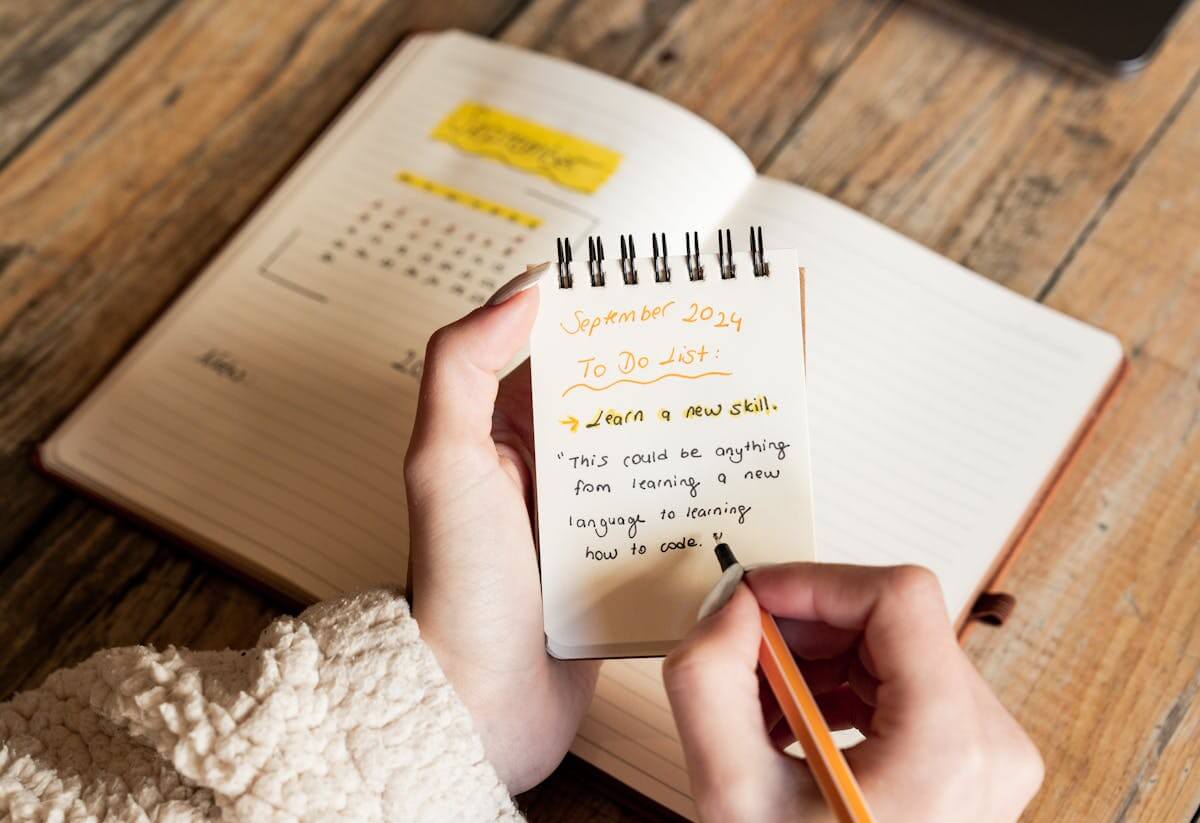 September 2024
To Do List:
→ Learn a new skill.
"This could be anything
from learning a new
language to learning
how to code.